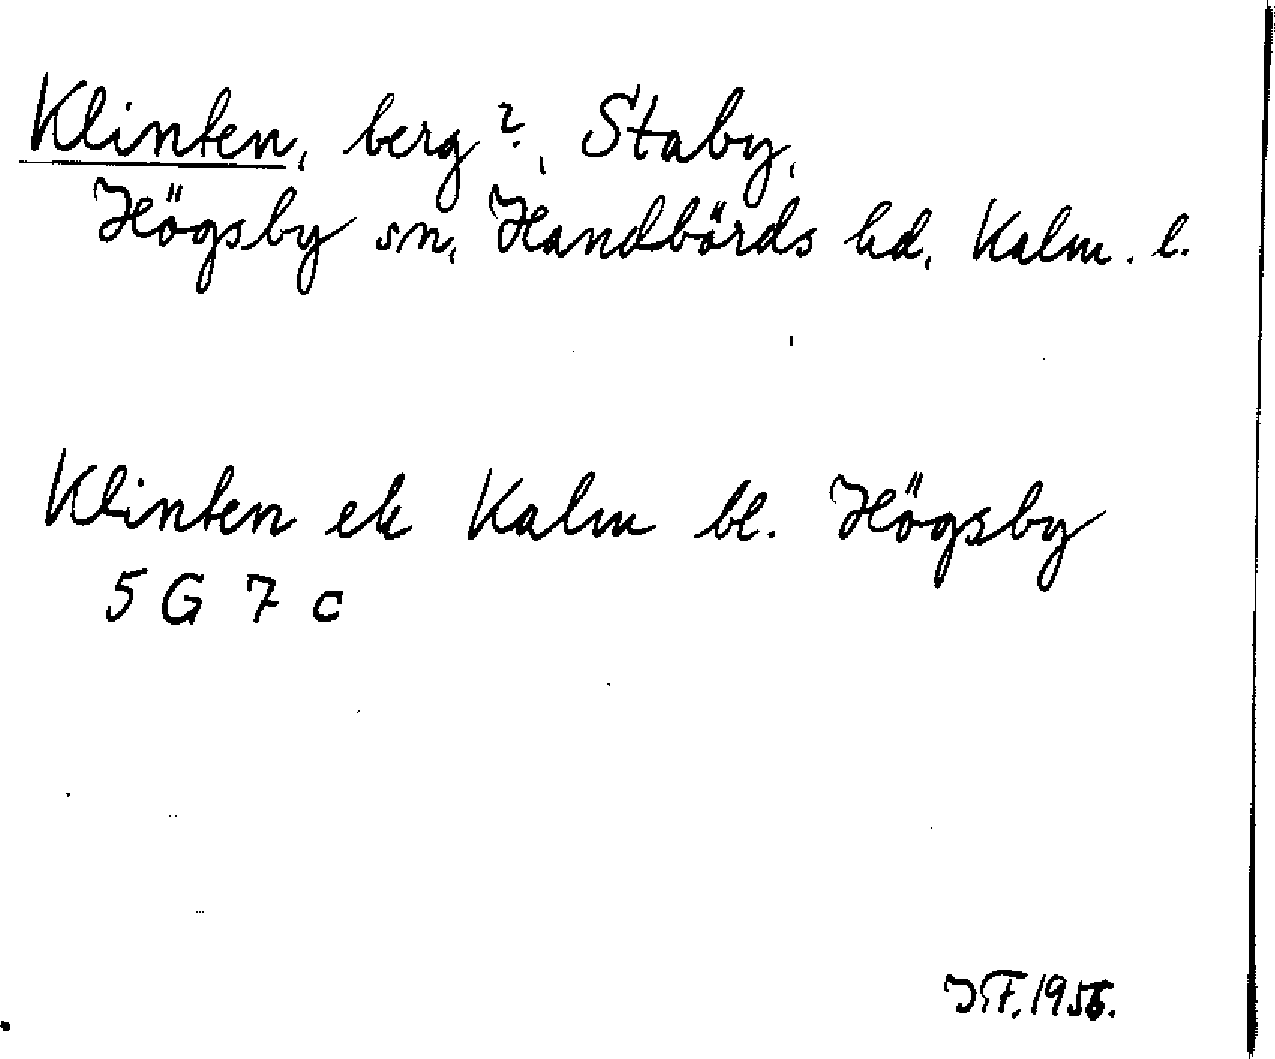 Klinten, berg?, Staby,
Högsby sn, Handbörds hd, Kalm. l.
Klinten ek Kalm bl. Högsby
5 G 7 c
J.F. 1956.